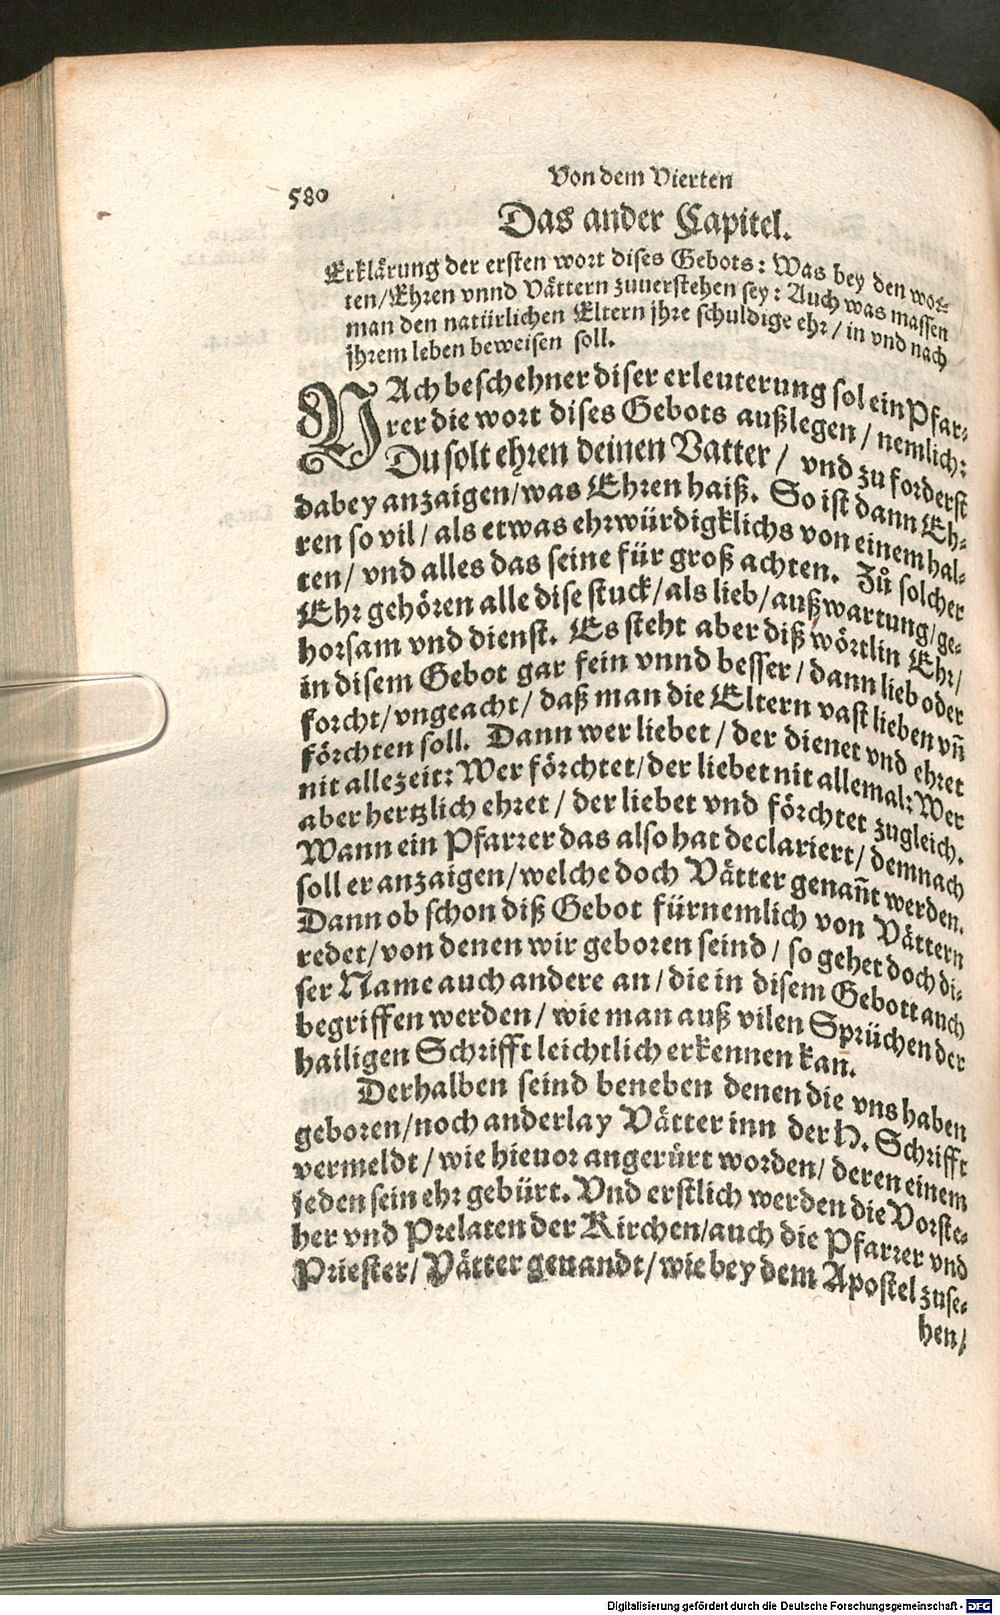 580
Von dem Vierten
Das ander Capitel.
Erklärung der ersten wort dises Gebots: Was bey den wor-
ten/Ehren vnnd Vättern zuuerstehen sey: Auch was massen
man den natürlichen Eltern jhre schuldige ehr/in vnd nach
jhrem leben beweisen soll.
NAch beschehner diser erleuterung sol ein Pfar-
rer die wort dises Gebots außlegen/nemlich:
Du solt ehren deinen Vatter/ vnd zu forderst
dabey anzaigen/was Ehren haiß. So ist dann Eh-
ren so vil/als etwas ehrwürdigklichs von einem hal-
ten/ vnd alles das seine für groß achten. Zů solcher
Ehr gehören alle dise stuck/als lieb/außwartung/ge-
horsam vnd dienst. Es steht aber diß wörtlin Ehr/
in disem Gebot gar fein vnnd besser/dann lieb oder
forcht/vngeacht/daß man die Eltern vast lieben vñ
förchten soll. Dann wer liebet/der dienet vnd ehret
nit allezeit: Wer förchtet/der liebet nit allemal: Wer
aber hertzlich ehret/der liebet vnd förchtet zugleich.
Wann ein Pfarrer das also hat declariert/demnach
soll er anzaigen/welche doch Vätter genañt werden.
Dann ob schon diß Gebot fürnemlich von Vättern
redet/von denen wir geboren seind/so gehet doch di-
ser Name auch andere an/die in disem Gebott auch
begriffen werden/wie man auß vilen Sprüchen der
hailigen Schrifft leichtlich erkennen kan.
Derhalben seind beneben denen die vns haben
geboren/noch anderlay Vätter inn der H. Schrifft
vermeldt/wie hieuor angerürt worden/deren einem
jeden sein ehr gebürt. Vnd erstlich werden die Vorste-
her vnd Prelaten der Kirchen/auch die Pfarrer vnd
Priester/Vätter genandt/wie bey dem Apostel zuse-
hen/
Digitalisierung gefördert durch die Deutsche Forschungsgemeinschaft - DFG